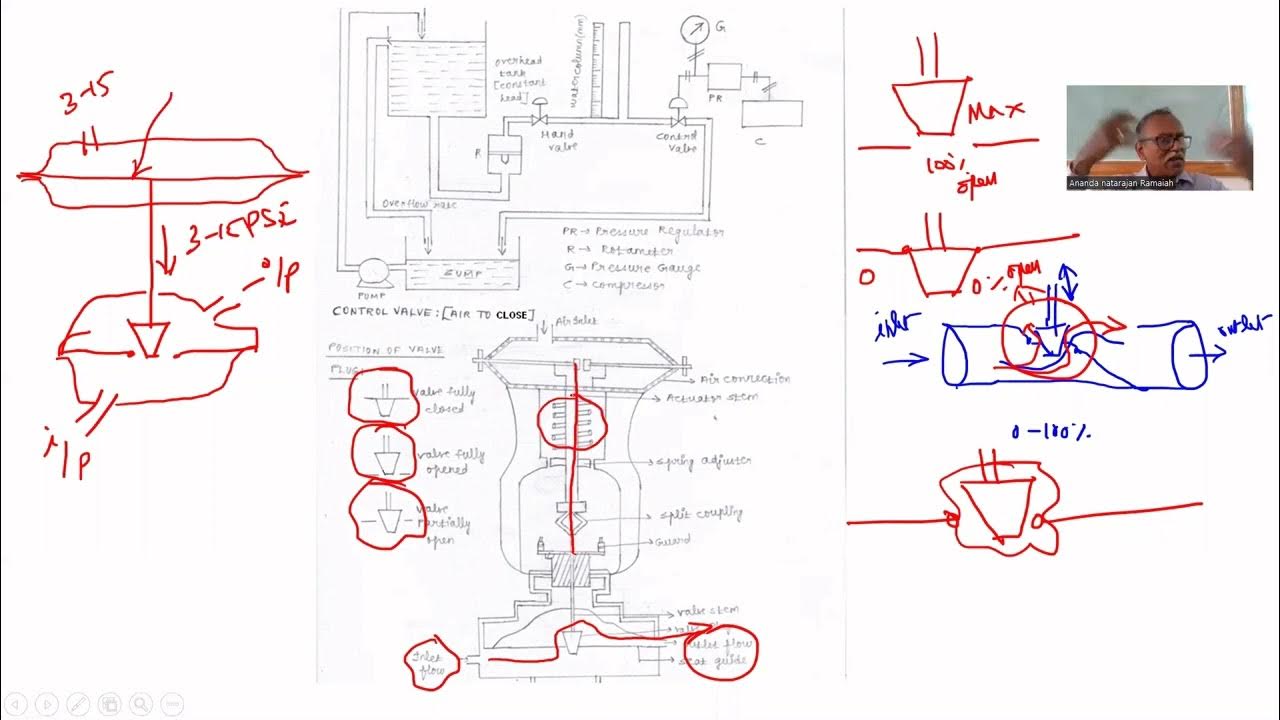 3-15
3-15PSi
i/p
i/p
overhead
tank
[constant
head]
water column(mm)
G
PR
C
Hand
valve
control
valve
R
Overflow rate
SUMP
PUMP
PR→ Pressure Regulator
R → Rotameter
G→ Pressure Gauge
C → compressor
CONTROL VALVE: [AIR TO CLOSE]
Air inlet
POSITION OF VALVE
PLUG
valve fully
closed
valve fully
opened
valve
partially
open
Air connection
Actuator stem
spring adjuster
split coupling
Guard
valve stem
outlet flow
seat guide
Inlet
flow
Max
100%
open
0
0% open
inlet
outlet
0-100%
Ananda natarajan Ramaiah